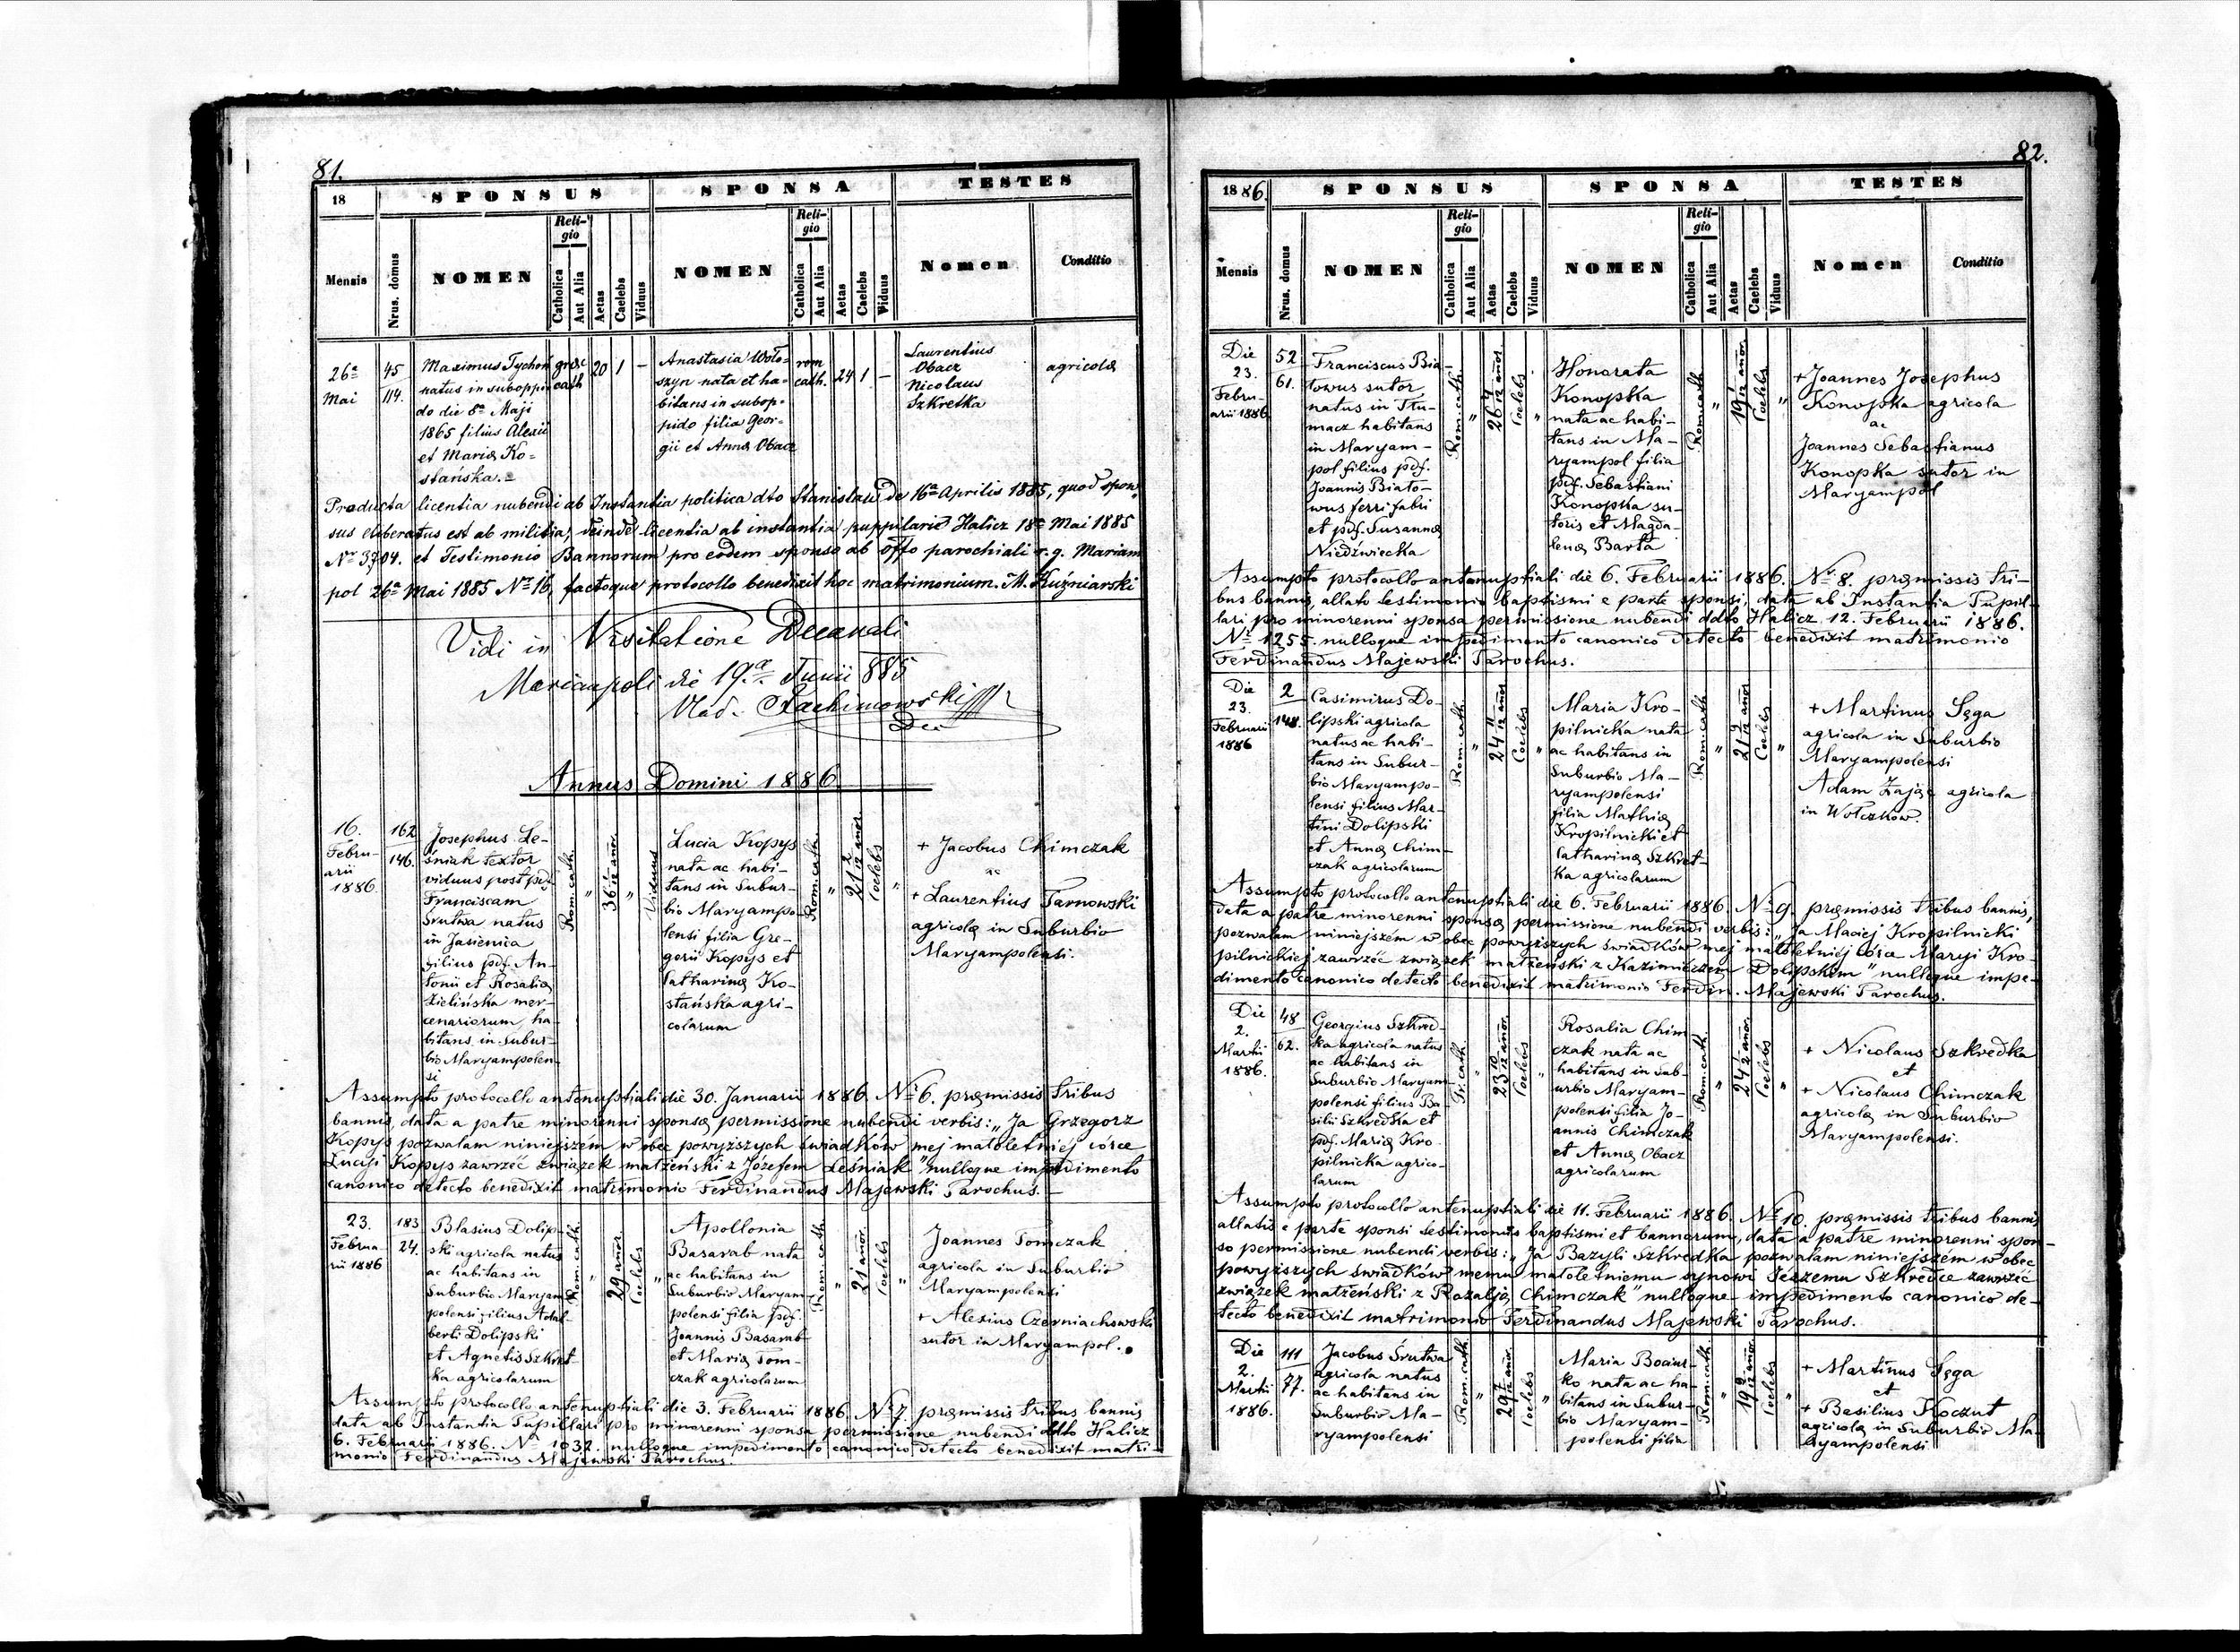 81.
18 SPONSUS SPONSA TESTES
Mensis Nrus. domus NOMEN Religio Catholica Aut Alia Aetas Caelebs Viduus NOMEN Religio Catholica Aut Alia Aetas Caelebs Viduus Nomen Conditio
26a
Mai
45
114.
Maximus Tychoń
natus in suboppi
do die 8a Maji
1865 filius Alexii
et Mariæ Ko=
stańska.=
græc
cath
20 1 –
Anastasia Woło=
szyn nata et ha=
bitans in subop=
pido filia Geor=
gii et Anna Obacz
rom
cath.
24 1 –
Laurentius
Obacz
Nicolaus
Szkretka
agricolæ
Producta licentia nubendi ab Instantia politica dto Stanislau de 16a Aprilis 1885, quod spon=
sus liberatus est ab militia, deinde licentia ab instantia puppilarie Halicz 18a Mai 1885
Nr 3704. et Testimonio Bannorum pro eodem sponso ab offo parochiali r. g. Mariam
pol 26a Mai 1885 Nr 16, factoque protocollo benedixit hoc matrimonium. M. Kuźniarski
Vidi in Visitatione Decanali
Mariampoli die 19a Junii 885
Annus Domini 1886
16.
Febru-
arii
1886
162
146.
Josephus Le-
śniak textor
viduus post pdf
Franciscam
Srutwa natus
in Jasienica
filius pdf. An-
tonii et Rosaliæ
Zielińska mer-
cenariorum ha-
bitans in Subur-
bio Maryampolen-
si
Rom. cath.
"
36 1/12 anor.
"
Viduus
Lucia Kopys
nata ac habi-
tans in Subur-
bio Maryampo-
lensi filia Gre-
gorii Kopys et
Catharinæ Ko-
stańska agri-
colarum
Rom. cath.
"
21 2/12 anor.
Coelebs
"
+ Jacobus Chimczak
ac
+ Laurentius Tarnowski
agricolæ in Suburbio
Maryampolensi.
Assumpto protocollo antenuptiali die 30. Januarii 1886. Nr 6. præmissis tribus
bannis, data a patre minorenni sponsæ permissione nubendi verbis: „Ja Grzegorz
Kopys pozwalam niniejszém w obec powyższych świadków mej małoletniéj córce
Lucyi Kopys zawrzéć związek małżeński z Józefem Leśniak" nulloque impedimento
canonico detecto benedixit matrimonio Ferdinandus Majewski Parochus.–
23.
Februa-
rii 1886
183
24.
Blasius Dolip-
ski agricola natus
ac habitans in
Suburbio Maryam
polensi filius Adal-
berti Dolipski
et Agnetis Szkret-
ka agricolarum
Rom. cath.
"
29 anor.
Coelebs
"
Apollonia
Basarab nata
ac habitans in
Suburbio Maryam
polensi filia pdf.
Joannis Basarab
et Mariæ Tom-
czak agricolarum
Rom. cath.
"
21 anor.
Coelebs
"
Joannes Tomczak
agricola in Suburbio
Maryampolensi
+ Alexius Czerniachowski
sutor in Maryampol.
Assumpto protocollo antenuptiali die 3. Februarii 1886. Nr 7. præmissis tribus bannis,
data ab Instantia Pupillari pro minorenni sponsa permissione nubendi ddto Halicz
6. Februarii 1886. Nr 1032. nulloque impedimento canonico detecto benedixit matri-
monio Ferdinandus Majewski Parochus.
82.
1886. SPONSUS SPONSA TESTES
Mensis Nrus. domus NOMEN Religio Catholica Aut Alia Aetas Caelebs Viduus NOMEN Religio Catholica Aut Alia Aetas Caelebs Viduus Nomen Conditio
Die
23.
Febru-
arii 1886
52
61.
Franciscus Bia-
łowus sutor
natus in Tłu-
macz habitans
in Maryam-
pol filius pdf.
Joannis Biało-
wus ferri fabri
et pdf. Susannæ
Niedźwiecka
Rom. cath.
"
26 4/12 anor.
Coelebs
"
Honorata
Konopka
nata ac habi-
tans in Ma-
ryampol filia
pdf. Sebastiani
Konopka su-
toris et Magda-
lenæ Barta
Rom. cath.
"
19 1/12 anor.
Coelebs
"
+ Joannes Josephus
Konopka agricola
ac
Joannes Sebastianus
Konopka sutor in
Maryampol
Assumpto protocollo antenuptiali die 6. Februarii 1886. Nr 8. præmissis tri-
bus bannis, allato testimonio baptismi e parte sponsi, data ab Instantia Pupil-
lari pro minorenni sponsa permissione nubendi ddto Halicz 12. Februarii 1886.
Nr 1255. nulloque impedimento canonico detecto benedixit matrimonio
Ferdinandus Majewski Parochus.
Die
23.
Februarii
1886
2
148.
Casimirus Do-
lipski agricola
natus ac habi-
tans in Subur-
bio Maryampo-
lensi filius Mar-
tini Dolipski
et Annæ Chim-
czak agricolarum
Rom. cath.
"
24 11/12 anor.
Coelebs
"
Maria Kro-
pilnicka nata
ac habitans in
Suburbio Ma-
ryampolensi
filia Mathiæ
Kropilnicki et
Catharinæ Szkret-
ka agricolarum
Rom. cath.
"
21 9/12 anor.
Coelebs
"
+ Martinus Sęga
agricola in Suburbio
Maryampolensi
Adam Zając agricola
in Wołczków.
Assumpto protocollo antenuptiali die 6. Februarii 1886. Nr 9. præmissis tribus bannis,
data a patre minorenni sponsæ permissione nubendi verbis: „Ja Maciej Kropilnicki
pozwalam niniejszém w obec powyższych świadków mej małoletniéj córce Maryi Kro-
pilnickiej zawrzéć związek małżeński z Kazimiérzem Dolipskim" nulloque impe-
dimento canonico detecto benedixit matrimonio Ferdin. Majewski Parochus.
Die
2.
Martii
1886.
48
62.
Georgius Szkred-
ka agricola natus
ac habitans in
Suburbio Maryam-
polensi filius Ba-
silii Szkredka et
pdf. Mariæ Kro-
pilnicka agrico-
larum
Gr. cath.
"
23 10/12 anor.
Coelebs
"
Rosalia Chim
czak nata ac
habitans in Sub-
urbio Maryam-
polensi filia Jo-
annis Chimczak
et Annæ Obacz
agricolarum
Rom. cath.
"
24 1/12 anor.
Coelebs
"
+ Nicolaus Szkredka
et
+ Nicolaus Chimczak
agricolæ in Suburbio
Maryampolensi.
Assumpto protocollo antenuptiali die 11. Februarii 1886. Nr 10. præmissis tribus bannis,
allatis e parte sponsi testimoniis baptismi et bannorum, data a patre minorenni spon-
so permissione nubendi verbis: „Ja Bazyli Szkredka pozwalam niniejszém w obec
powyższych świadków memu małoletniemu synowi Jerzemu Szkredce zawrzéć
związek małżeński z Rozalją Chimczak" nulloque impedimento canonico de-
tecto benedixit matrimonio Ferdinandus Majewski Parochus.
Die
2.
Martii
1886.
111
77.
Jacobus Srutwa
agricola natus
ac habitans in
Suburbio Ma-
ryampolensi
Rom. cath.
"
29 7/12 anor.
Coelebs
"
Maria Bociur-
ko nata ac ha-
bitans in Subur-
bio Maryam-
polensi filia
Rom. cath.
"
19 9/12 anor.
Coelebs
"
+ Martinus Sęga
et
+ Basilius Koczut
agricolæ in Suburbio Ma-
ryampolensi